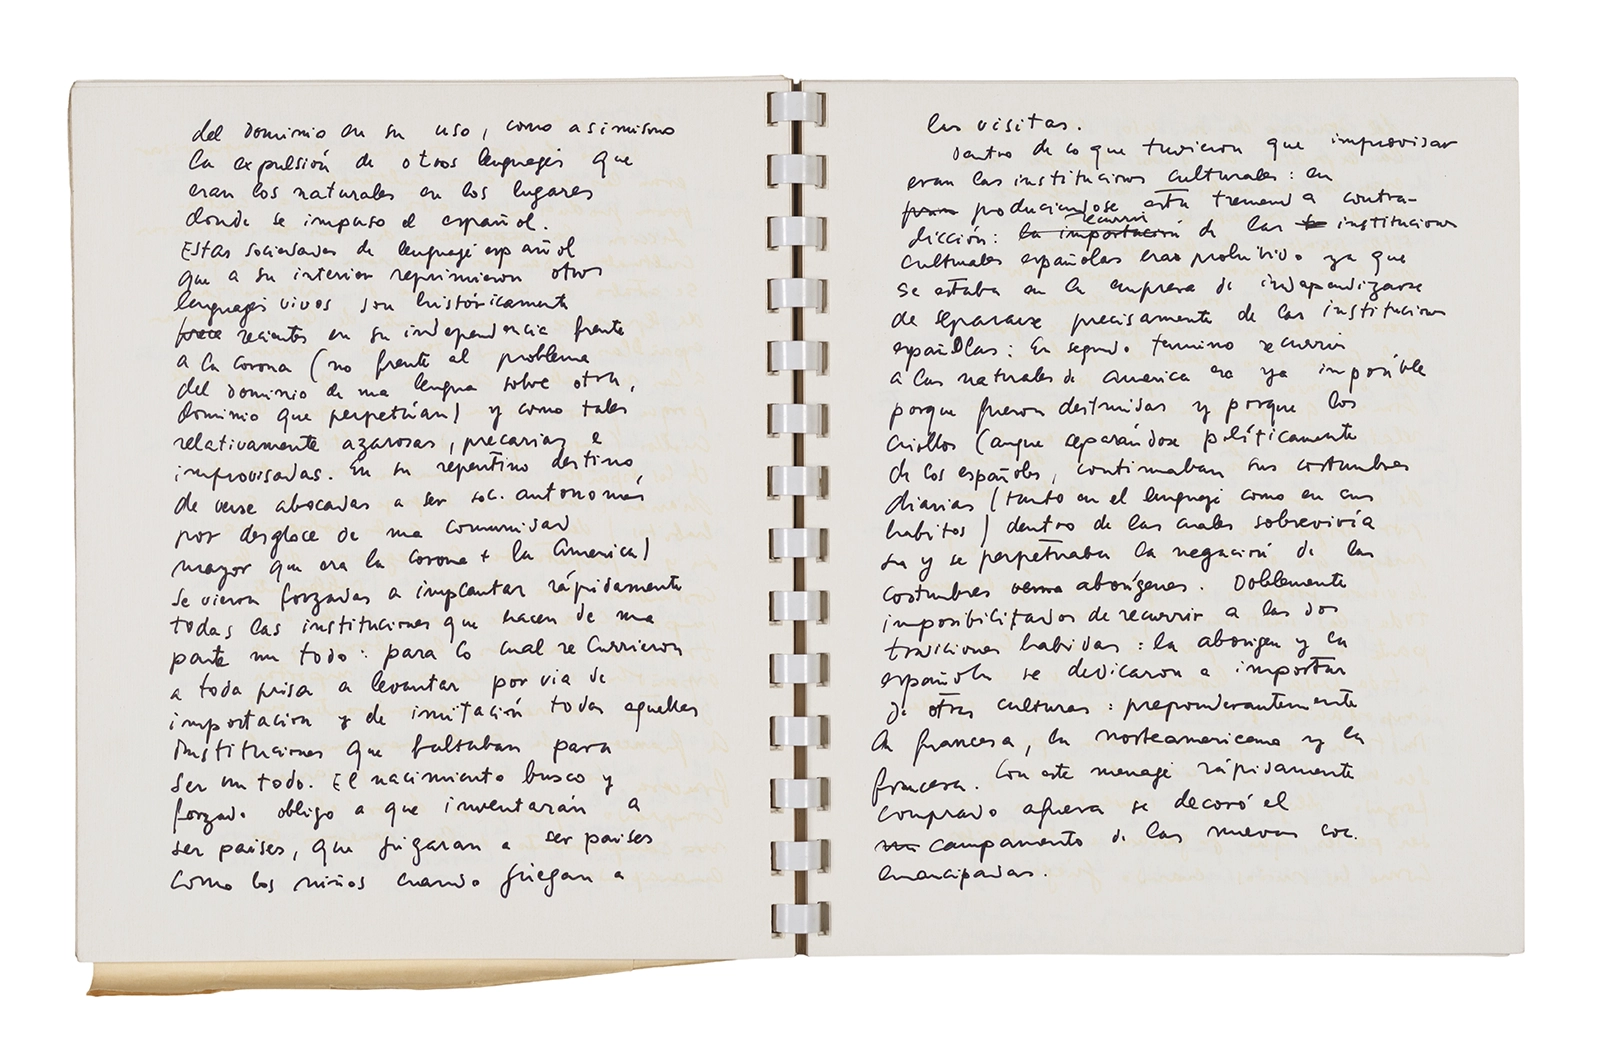 del dominio en su uso, como asimismo
la expulsión de otros lenguajes que
eran los naturales en los lugares
donde se impuso el español.
Estas sociedades de lenguaje español
que a su interior reprimieron otros
lenguajes vivos son históricamente
recientes en su independencia frente
a la corona (no frente al problema
del dominio de una lengua sobre otra,
dominio que perpetúan) y como tales
relativamente azarosas, precarias e
improvisadas. En su repentino destino
de verse abocadas a ser soc. autonomas
por desgloce de una comunidad
mayor que era la corona + la America)
se vieron forzadas a implantar rápidamente
todas las instituciones que hacen de una
parte un todo: para lo cual recurrieron
a toda prisa a levantar por via de
importacion y de imitación todas aquellas
instituciones que faltaban para
ser un todo. El nacimiento busco y
forzado obligo a que inventarán a
ser paises, que jugaran a ser paises
como los niños cuando juegan a
las visitas.
Dentro de lo que tuvieron que improvisar
eran las instituciones culturales: en
produciendose esta tremenda contra-
dicción: la importación recurrir de las instituciones
culturales españolas era prohibido ya que
se estaba en la empresa de independizarse
de separarse precisamente de las instituciones
españolas: En segundo termino recurrir
a las naturales de America era ya imposible
porque fueron destruidas y porque los
criollos (aunque separándose políticamente
de los españoles, continuaban sus costumbres
diarias (tanto en el lenguaje como en sus
habitos) dentro de las cuales sobrevivía
su y se perpetuaba la negación de las
costumbres aborígenes. Doblemente
imposibilitados de recurrir a las dos
tradiciones habidas: la aborigen y la
española se dedicaron a importar
de otras culturas: preponderantemente
la francesa, la norteamericana y la
francesa. Con este menage rápidamente
comprado afuera se decoró el
un campamento de las nuevas soc.
emancipadas.